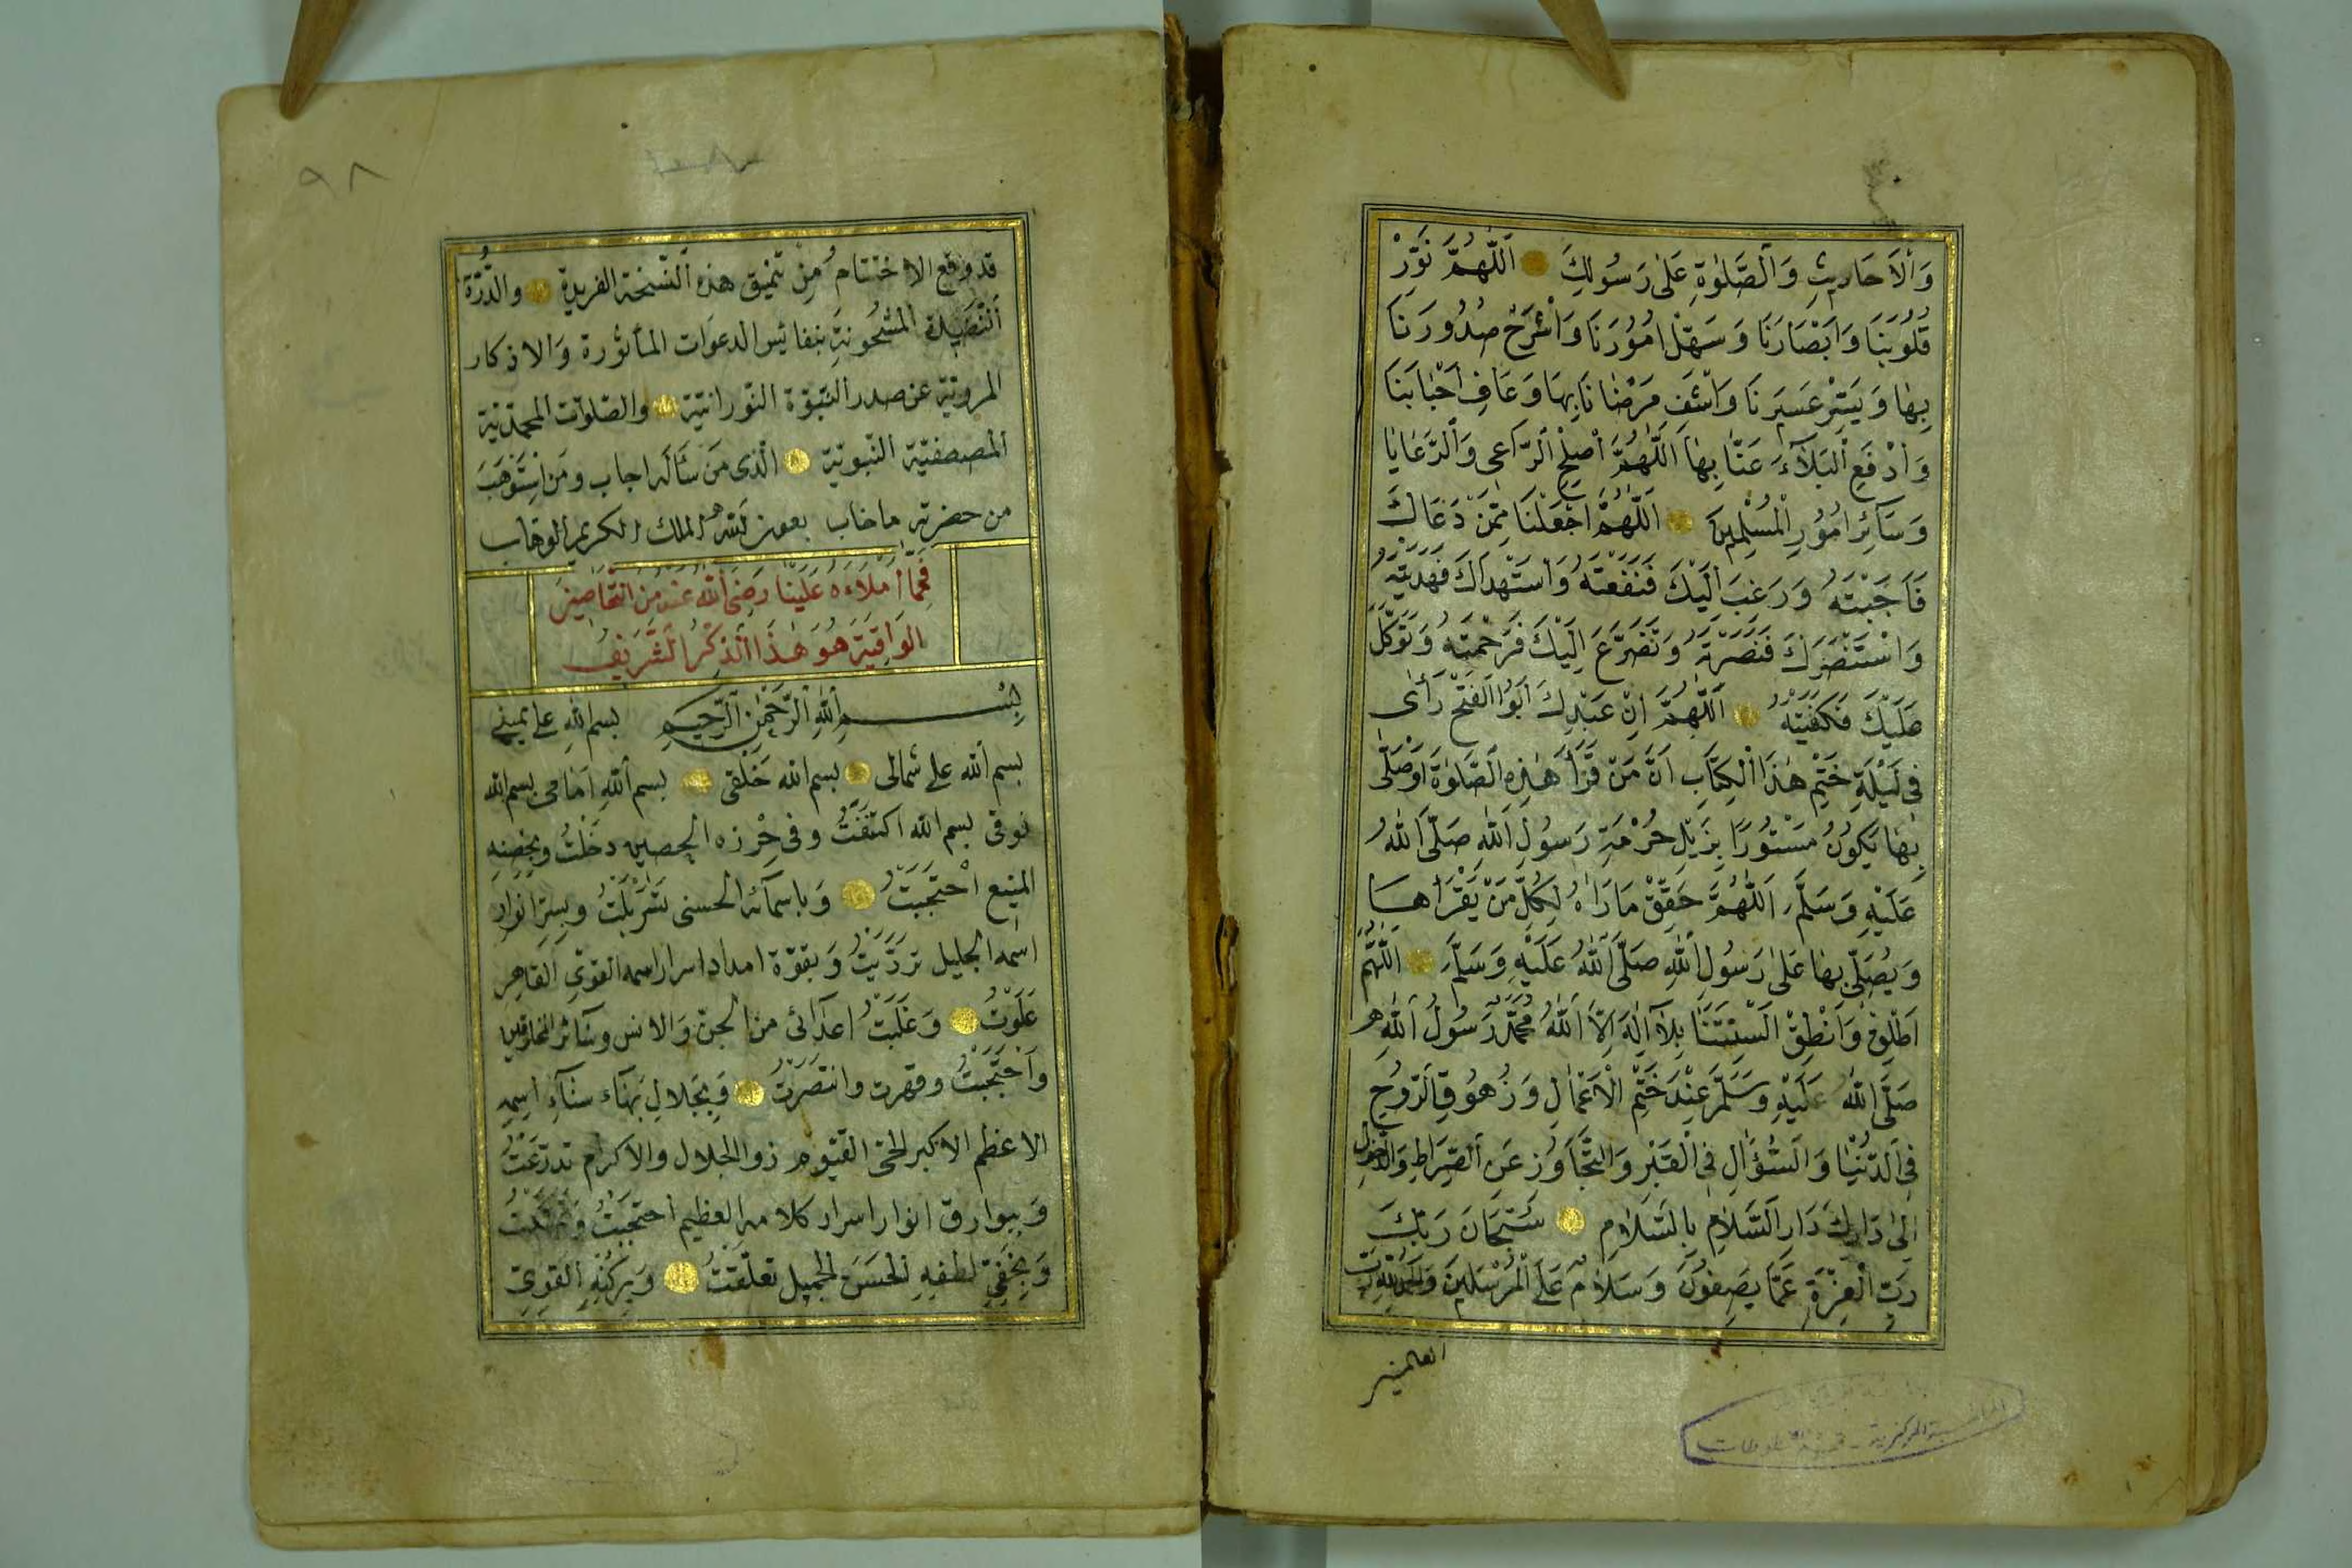 وَالْاَحَادِيثِ وَالصَّلٰوةِ عَلٰى رَسُولِكَ اَللّٰهُمَّ نَوِّرْ
قُلُوبَنَا وَاَبْصَارَنَا وَسَهِّلْ اُمُورَنَا وَاشْرَحْ صُدُورَنَا
بِهَا وَيَسِّرْ عَسِيرَنَا وَاشْفِ مَرْضَانَا بِهَا وَعَافِ اَحْبَابَنَا
وَادْفَعِ الْبَلَآءَ عَنَّا بِهَا اَللّٰهُمَّ اَصْلِحِ الرَّاعِى وَالرَّعَايَا
وَسَآئِرَ اُمُورِ الْمُسْلِمِينَ اَللّٰهُمَّ اجْعَلْنَا مِمَّنْ دَعَاكَ
فَاَجَبْتَهُ وَرَغِبَ اِلَيْكَ فَنَفَعْتَهُ وَاسْتَهْدَاكَ فَهَدَيْتَهُ
وَاسْتَنْصَرَكَ فَنَصَرْتَهُ وَتَضَرَّعَ اِلَيْكَ فَرَحِمْتَهُ وَتَوَكَّلَ
عَلَيْكَ فَكَفَيْتَهُ اَللّٰهُمَّ اِنَّ عَبْدَكَ اَبُو الْفَتْحِ رَأٰى
فِى لَيْلَةِ خَتْمِ هٰذَا الْكِتَابِ اَنَّ مَنْ قَرَأَ هٰذِهِ الصَّلٰوةَ اَوْ صَلّٰى
بِهَا يَكُونُ مَسْتُورًا بِذَيْلِ حُرْمَةِ رَسُولِ اللّٰهِ صَلَّى اللّٰهُ
عَلَيْهِ وَسَلَّمَ اَللّٰهُمَّ حَقِّقْ مَا رَاٰهُ لِكُلِّ مَنْ يَقْرَاُهَا
وَيُصَلِّى بِهَا عَلٰى رَسُولِ اللّٰهِ صَلَّى اللّٰهُ عَلَيْهِ وَسَلَّمَ اَللّٰهُمَّ
اَطْلِقْ وَاَنْطِقْ اَلْسِنَتَنَا بِلَآ اِلٰهَ اِلَّا اللّٰهُ مُحَمَّدٌ رَسُولُ اللّٰهِ
صَلَّى اللّٰهُ عَلَيْهِ وَسَلَّمَ عِنْدَ خَتْمِ الْاَعْمَالِ وَزُهُوقِ الرُّوحِ
فِى الدُّنْيَا وَالسُّؤَالِ فِى الْقَبْرِ وَالتَّجَاوُزِ عَنِ الصِّرَاطِ وَالدُّخُولِ
اِلٰى دَارِكَ دَارِ السَّلَامِ بِالسَّلَامِ سُبْحَانَ رَبِّكَ
رَبِّ الْعِزَّةِ عَمَّا يَصِفُونَ وَسَلَامٌ عَلَى الْمُرْسَلِينَ وَالْحَمْدُ لِلّٰهِ رَبِّ
العالمين
٩٨
قد وقع الاختتام من تنميق هذه النسخة الفريدة والدُّرَّة
النضيدة المشحونة بنفائس الدعوات المأثورة والاذكار
المروية عن صدر النبوّة النورانية والصلوات المحمّدية
المصطفيّة النبوية الذى من سَأله اجاب ومن استَوْهَبَ
من حضرته ما خاب بعون الله الملك الكريم الوهاب
فَمِمَّا اَمْلَاءَهُ عَلَيْنَا رَضِىَ اللّٰهُ عَنْهُ مِنَ التَّحَاصِينِ
الْوَاقِيَةِ هُوَ هٰذَا الذِّكْرُ الشَّرِيفُ
بِسْمِ اللّٰهِ الرَّحْمٰنِ الرَّحِيمِ بسم الله على يمينى
بسم الله على شمالى بسم الله خَلْفى بسم الله اَمَامى بسم الله
فوقى بسم الله اكتَنَفْتُ وفى حِرْزه الحصين دخَلْتُ وبحِصْنِهِ
المنيع احْتَجَبْتُ وَباسمآئه الحسنى تَسَرْبَلْتُ وبسِرِّ انوار
اسمه الجليل تَرَدَّيْتُ وَبقوّة امداد اسرار اسمه القوى القاهر
عَلَوْتُ وَغَلَبْتُ اعدآئى من الجن وَالانس وسَآئر المخلوقين
وَاحْتَجَبْتُ وقهرت وانتَصَرْتُ وَبِجَلالِ بَهَآء سَنَآءِ اسمه
الاعظم الاكبر الحىّ القيّوم ذو الجلال والاكرام تَدَرَّعْتُ
وَببوارق انوار اسرار كلامه العظيم احتجَبْتُ
وَبِخَفِىِّ لُطْفِهِ الحَسَنِ الجميل تَعَلَّقْتُ وَبِرُكْنِهِ القوىّ